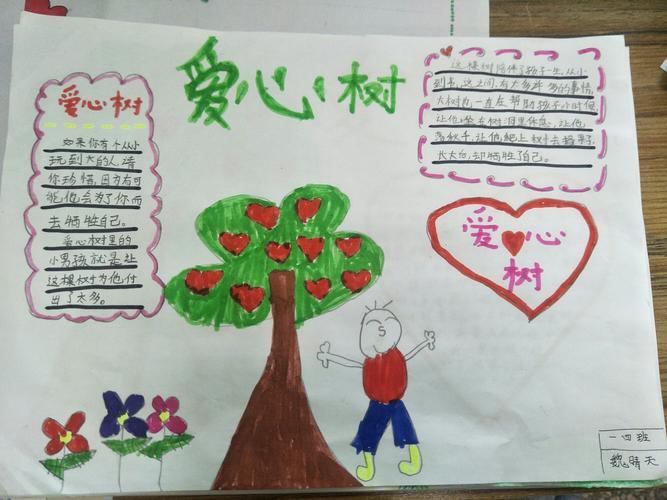 爱心树
爱心树
如果你有个从小
玩到大的人,请
你珍惜,因为有可
能他会为了你而
去牺牲自己。
爱心树里的
小男孩就是让
这棵树为他付
出了太多。
这棵树陪伴了孩子一生,从小
到老,这之间,有太多年多的事情,
大树也一直在帮助孩子小时候,
让他坐在树洞里休息,让他
荡秋千,让他爬上树去摘果子,
长大了,却牺牲了自己。
爱心
树
一四班
魏晴天